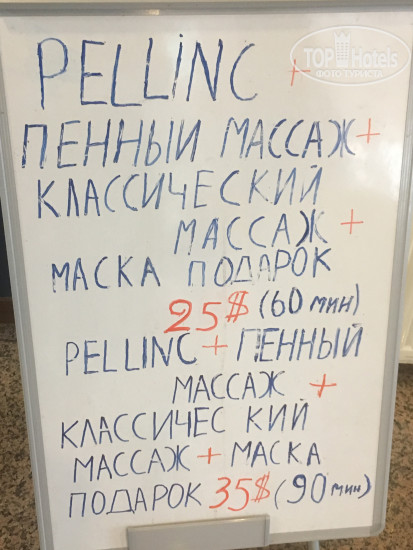 PELLINC +
ПЕННЫЙ МАССАЖ +
КЛАССИЧЕСКИЙ
МАССАЖ +
МАСКА ПОДАРОК
25$ (60 мин)
PELLINC + ПЕННЫЙ
МАССАЖ +
КЛАССИЧЕС КИЙ
МАССАЖ + МАСКА
ПОДАРОК 35$ (90 мин)
TOP Hotels
ФОТО ТУРИСТА